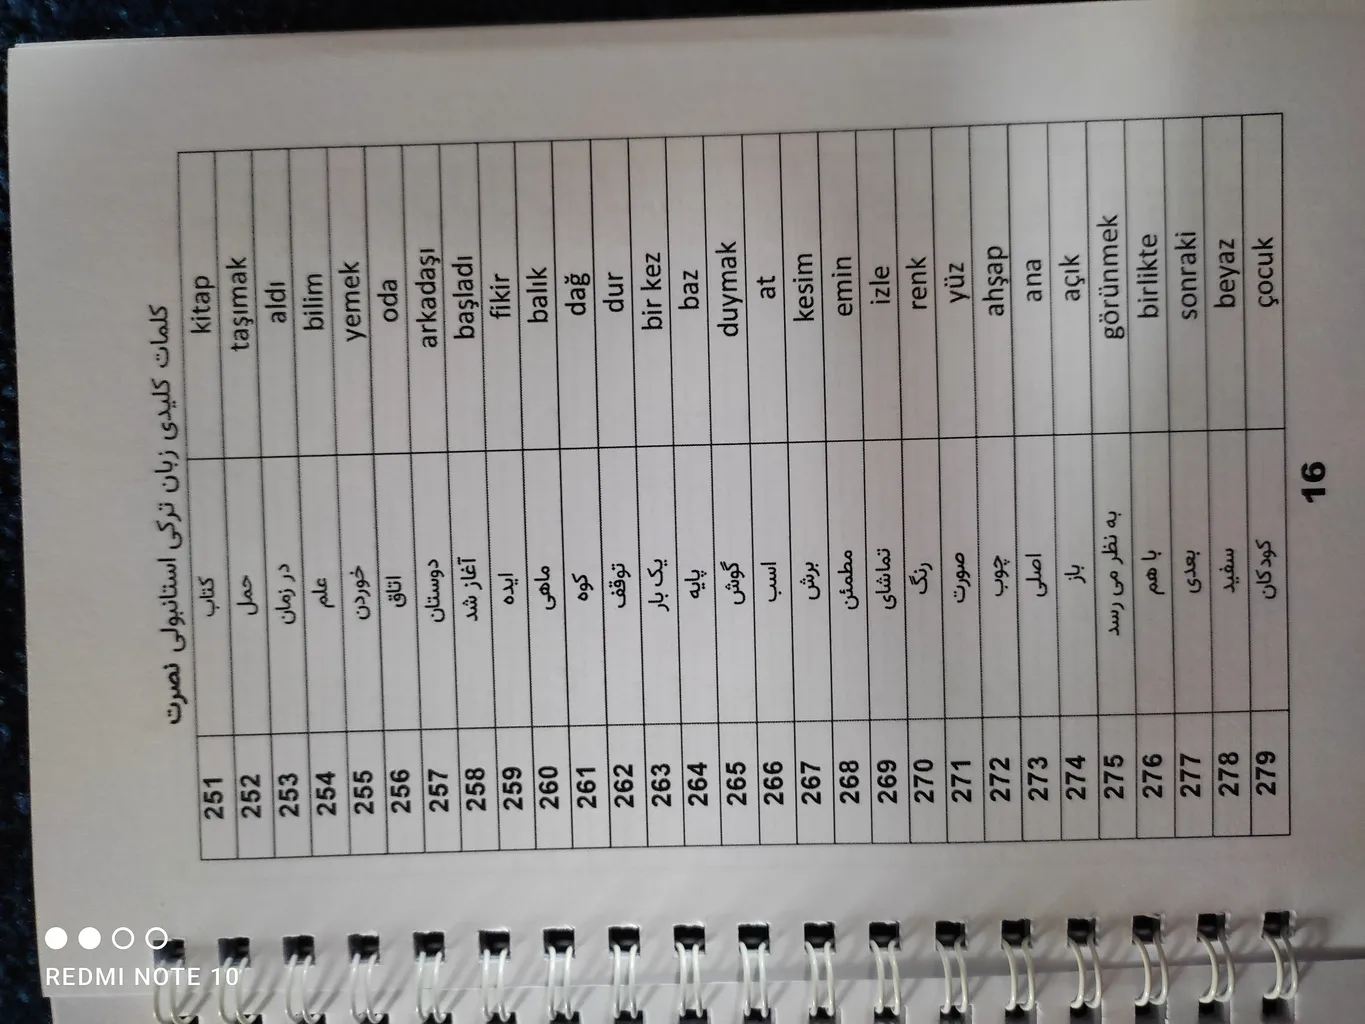 کلمات کلیدی زبان ترکی استانبولی نصرت
251 کتاب kitap
252 حمل taşımak
253 در زمان aldı
254 علم bilim
255 خوردن yemek
256 اتاق oda
257 دوستان arkadaşı
258 آغاز شد başladı
259 ایده fikir
260 ماهی balık
261 کوه dağ
262 توقف dur
263 یک بار bir kez
264 پایه baz
265 گوش duymak
266 اسب at
267 برش kesim
268 مطمئن emin
269 تماشای izle
270 رنگ renk
271 صورت yüz
272 چوب ahşap
273 اصلی ana
274 باز açık
275 به نظر می رسد görünmek
276 با هم birlikte
277 بعدی sonraki
278 سفید beyaz
279 کودکان çocuk
16
REDMI NOTE 10